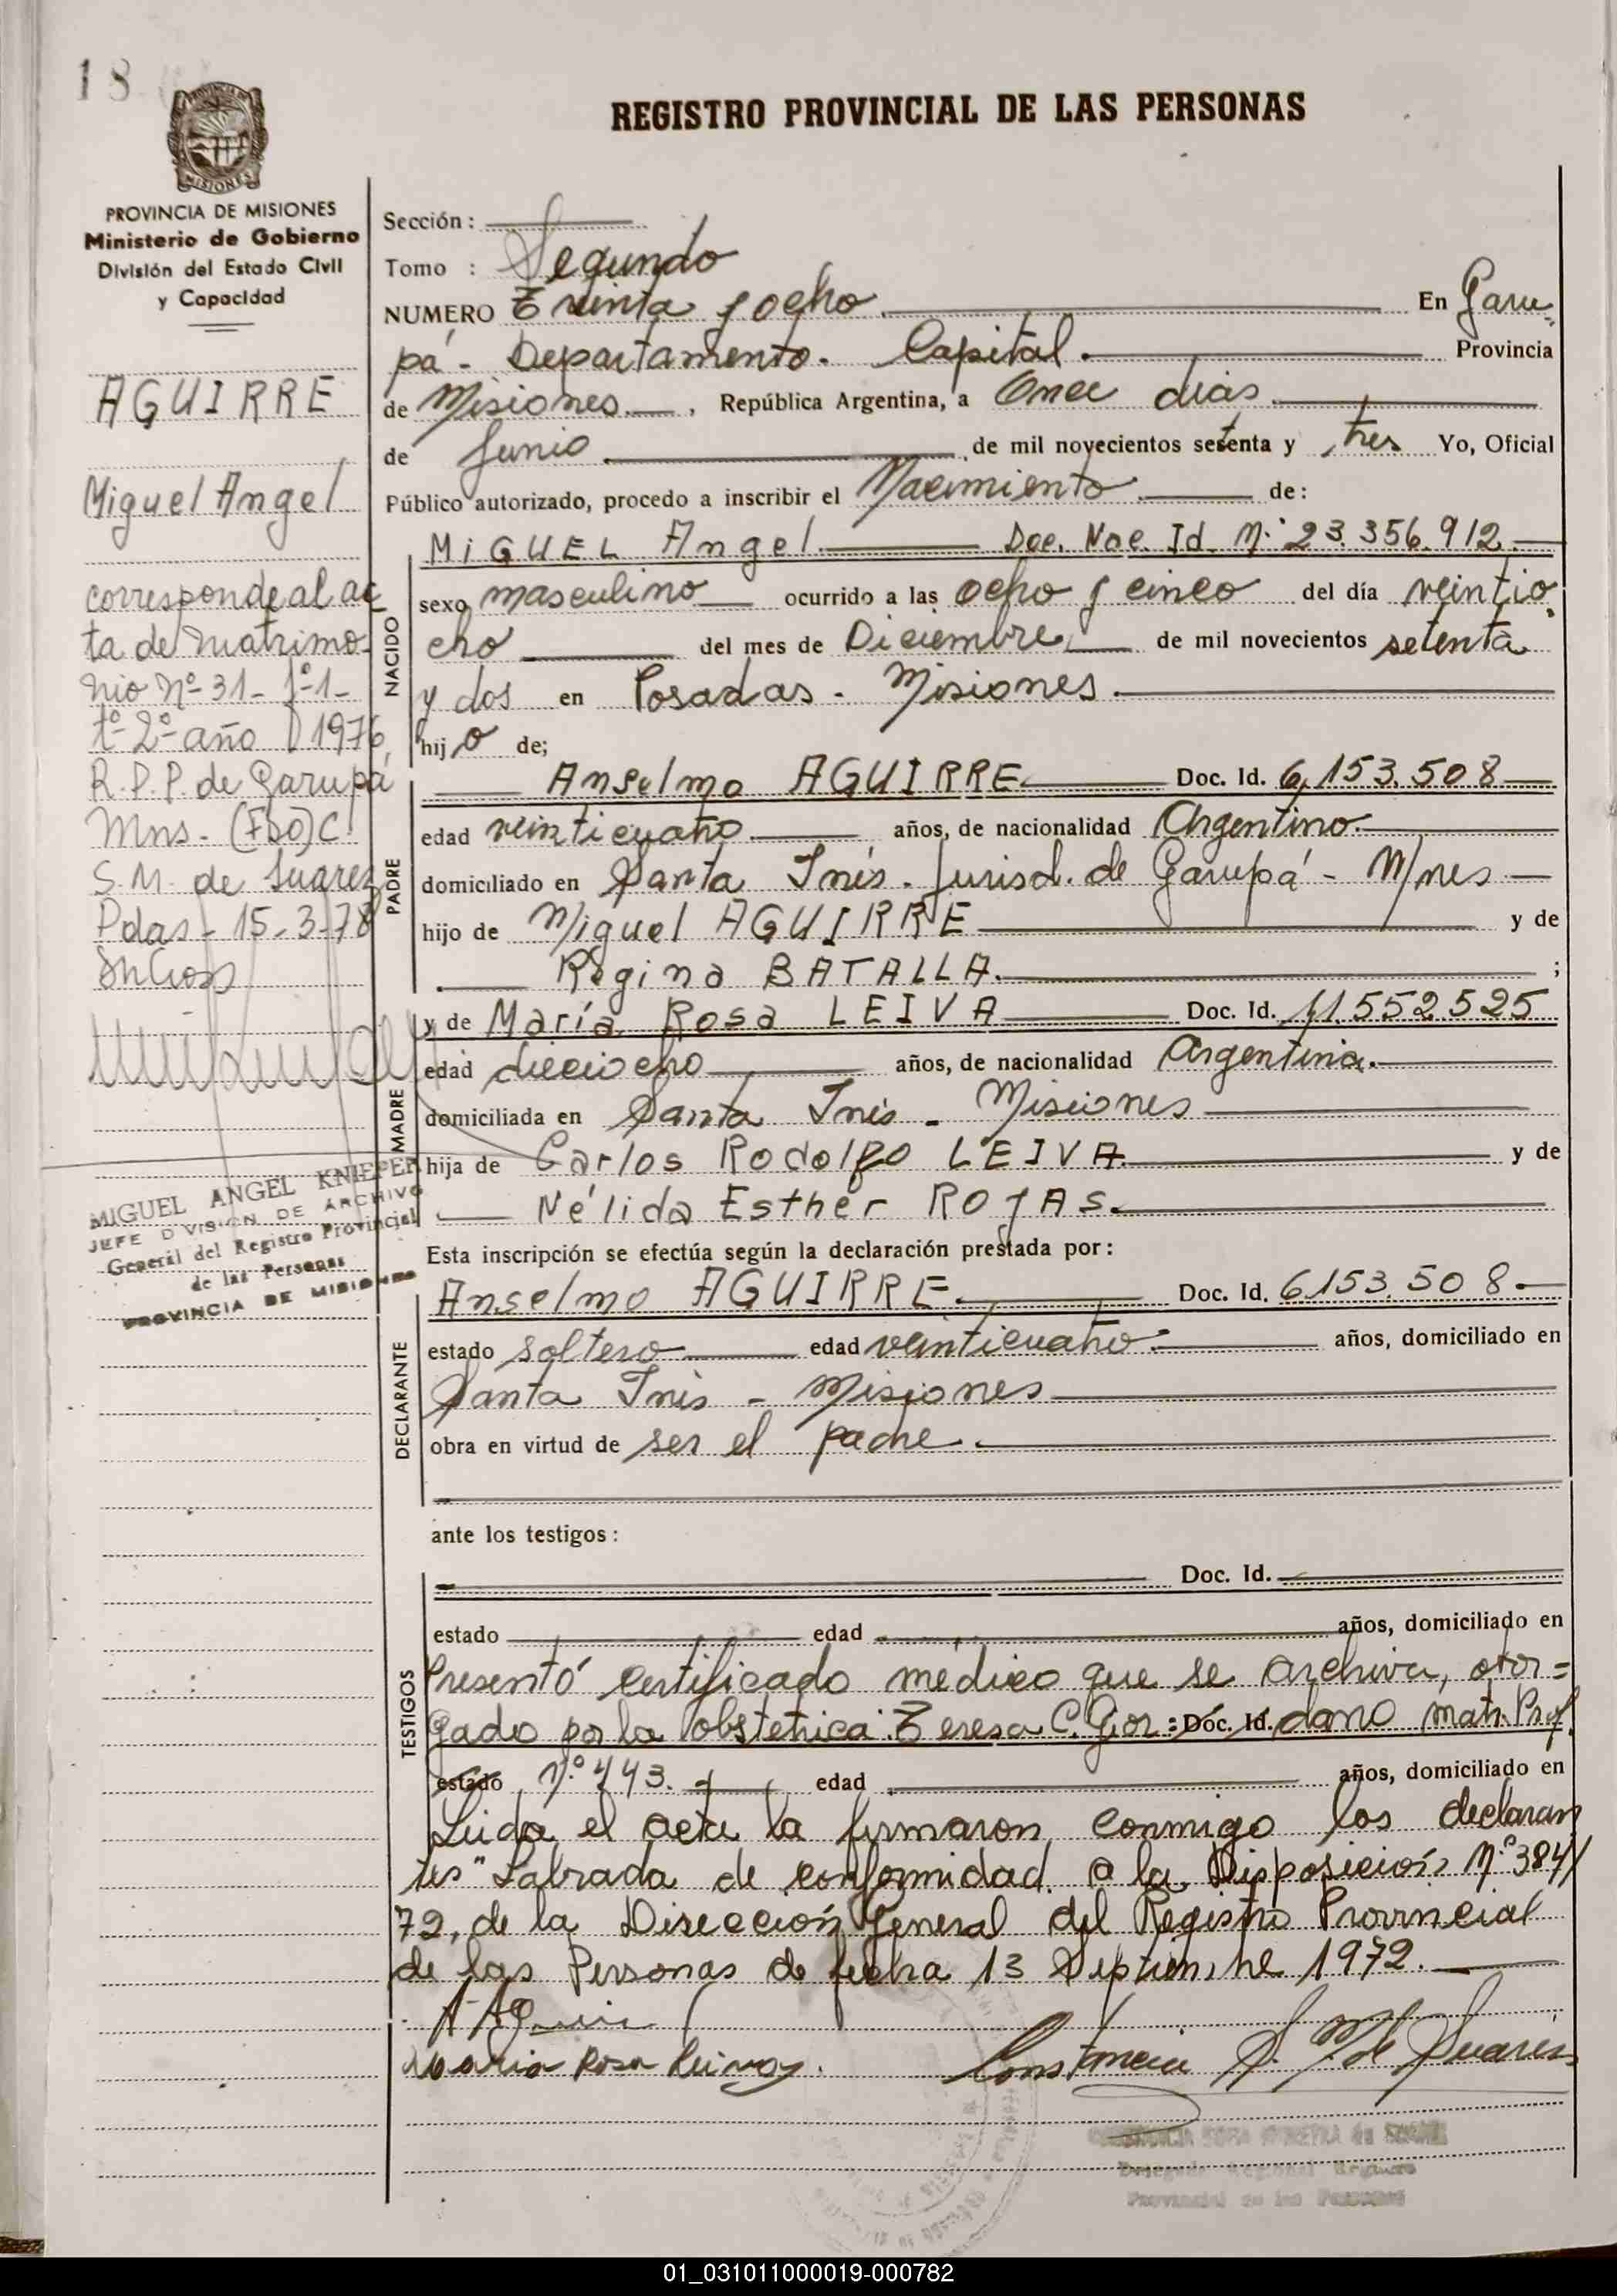 18
REGISTRO PROVINCIAL DE LAS PERSONAS
MISIONES
PROVINCIA DE MISIONES
Ministerio de Gobierno
División del Estado Civil
y Capacidad
AGUIRRE
Miguel Angel
corresponde al ac
ta de matrimo-
nio Nº-31- fº-1-
tº-2º-año 1976
R.P.P. de Garupá
Mns.- (FDO) C.
S.M. de Suarez
Pdas- 15-3-78
MIGUEL ANGEL KNIEPER
JEFE DIVISION DE ARCHIVO
General del Registro Provincial
de las Personas
PROVINCIA DE MISIONES
Sección:
Tomo : Segundo
NUMERO Treinta y ocho En Garu=
pá- Departamento. Capital. Provincia
de Misiones , República Argentina, a Once dias
de Junio de mil novecientos setenta y tres Yo, Oficial
Público autorizado, procedo a inscribir el Nacimiento de:
NACIDO
MIGUEL Angel Doc. Nac. Id. Nº 23.356.912
sexo masculino ocurrido a las ocho y cinco del día veintio
cho del mes de Diciembre de mil novecientos setenta
y dos en Posadas - Misiones
hijo de;
PADRE
Anselmo AGUIRRE Doc. Id. 6,153.508
edad veinticuatro años, de nacionalidad Argentino.
domiciliado en Santa Inés. Jurisd. de Garupá - M/nes
hijo de Miguel AGUIRRE y de
Regina BATALLA. ;
MADRE
y de María Rosa LEIVA Doc. Id. 11.552.525
edad dieciocho años, de nacionalidad Argentina.
domiciliada en Santa Inés - Misiones
hija de Carlos Rodolfo LEIVA y de
Nélida Esther ROJAS.
Esta inscripción se efectúa según la declaración prestada por:
DECLARANTE
Anselmo AGUIRRE. Doc. Id. 6153.508.
estado soltero edad veinticuatro años, domiciliado en
Santa Inés - Misiones
obra en virtud de ser el padre.
ante los testigos:
TESTIGOS
Doc. Id.
estado edad años, domiciliado en
Presentó certificado médico que se archiva, otor=
gado por la obstetrica: Teresa C. Gior= Doc. Id. dano matr. Prof.
estado Nº 443. edad años, domiciliado en
Leida el acta la firmaron conmigo los declaran
tes" Labrada de conformidad a la Disposición Nº 384/
72, de la Dirección General del Registro Provincial
de las Personas de fecha 13 Septiembre 1972.
María Rosa Leiva
Constancia S. M. de Suarez
Delegada Regional Registro
Provincial de las Personas
01_031011000019-000782